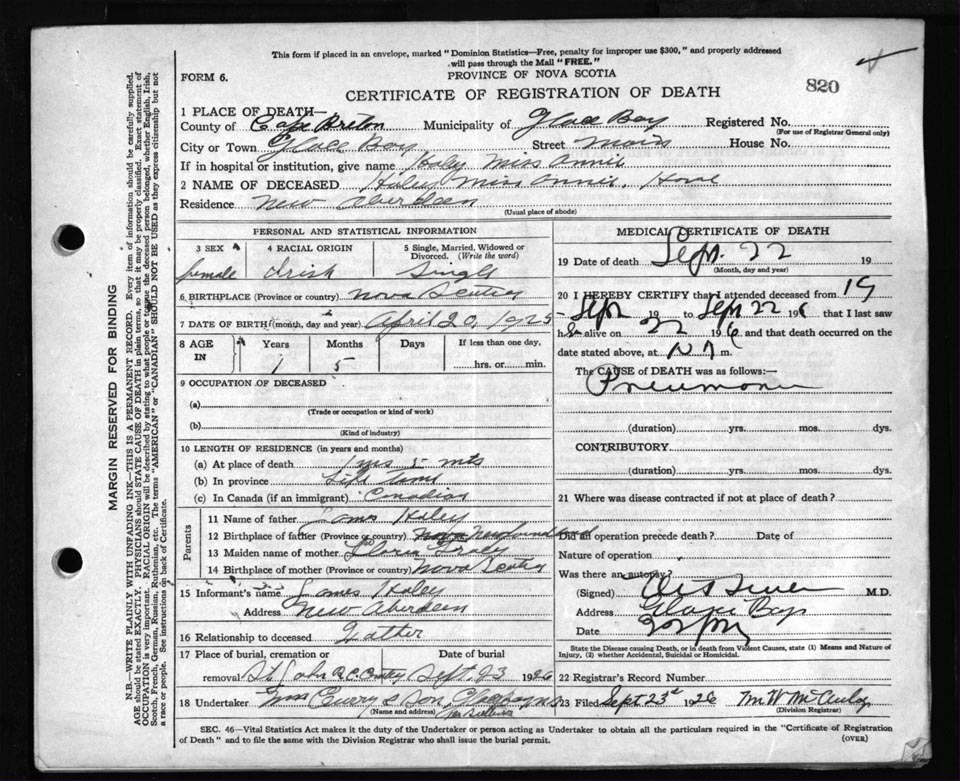 This form if placed in an envelope, marked "Dominion Statistics—Free, penalty for improper use $300," and properly addressed
will pass through the Mail "FREE."
FORM 6.
PROVINCE OF NOVA SCOTIA
820
CERTIFICATE OF REGISTRATION OF DEATH
1 PLACE OF DEATH—
County of Cape Breton Municipality of Glace Bay Registered No.
(For use of Registrar General only)
City or Town Glace Bay Street Main House No.
If in hospital or institution, give name Haley Miss Annie
2 NAME OF DECEASED Haley Miss Annie.
Residence New Aberdeen
(Usual place of abode)
PERSONAL AND STATISTICAL INFORMATION
3 SEX 4 RACIAL ORIGIN 5 Single, Married, Widowed or Divorced. (Write the word)
female Irish Single
6 BIRTHPLACE (Province or country) Nova Scotia
7 DATE OF BIRTH (month, day and year) April 20, 1925
8 AGE IN Years Months Days If less than one day,
1 5 hrs. or min.
9 OCCUPATION OF DECEASED
(a)
(Trade or occupation or kind of work)
(b)
(Kind of industry)
10 LENGTH OF RESIDENCE (in years and months)
(a) At place of death 5 mts
(b) In province Life time
(c) In Canada (if an immigrant) Canadian
Parents
11 Name of father James Haley
12 Birthplace of father (Province or country) Newfoundland
13 Maiden name of mother Grady
14 Birthplace of mother (Province or country) Nova Scotia
15 Informant's name James Haley
Address New Aberdeen
16 Relationship to deceased Father
17 Place of burial, cremation or Date of burial
removal St John R.C. Sept. 23 1926
18 Undertaker & Son
(Name and address)
MEDICAL CERTIFICATE OF DEATH
19 Date of death Sept. 22 19
(Month, day and year)
20 I HEREBY CERTIFY that I attended deceased from 19
Sept 19 to Sept 22 1926 that I last saw
h alive on 22 1926, and that death occurred on the
date stated above, at m.
The CAUSE of DEATH was as follows:—
Pneumonia
(duration) yrs. mos. dys.
CONTRIBUTORY
(duration) yrs. mos. dys.
21 Where was disease contracted if not at place of death?
Did an operation precede death? Date of
Nature of operation
Was there an autopsy?
(Signed) M.D.
Address Glace Bay
Date
State the Disease causing Death, or in death from Violent Causes, state (1) Means and Nature of
Injury, (2) whether Accidental, Suicidal or Homicidal.
22 Registrar's Record Number
23 Filed Sept 23d 1926
(Division Registrar)
SEC. 46—Vital Statistics Act makes it the duty of the Undertaker or person acting as Undertaker to obtain all the particulars required in the "Certificate of Registration
of Death" and to file the same with the Division Registrar who shall issue the burial permit.
(OVER)
MARGIN RESERVED FOR BINDING
N.B.—WRITE PLAINLY WITH UNFADING INK—THIS IS A PERMANENT RECORD. Every item of information should be carefully supplied.
AGE should be stated EXACTLY. PHYSICIANS should STATE CAUSE OF DEATH in plain terms, so that it may be properly classified. Exact statement of
OCCUPATION is very important. RACIAL ORIGIN will be described by stating to what people or tongue the deceased person belonged, whether English, Irish,
Scotch, French, German, Russian, Ruthenian, etc. The terms "AMERICAN" or "CANADIAN" SHOULD NOT BE USED as they express citizenship but not
a race or people. See instructions on back of Certificate.